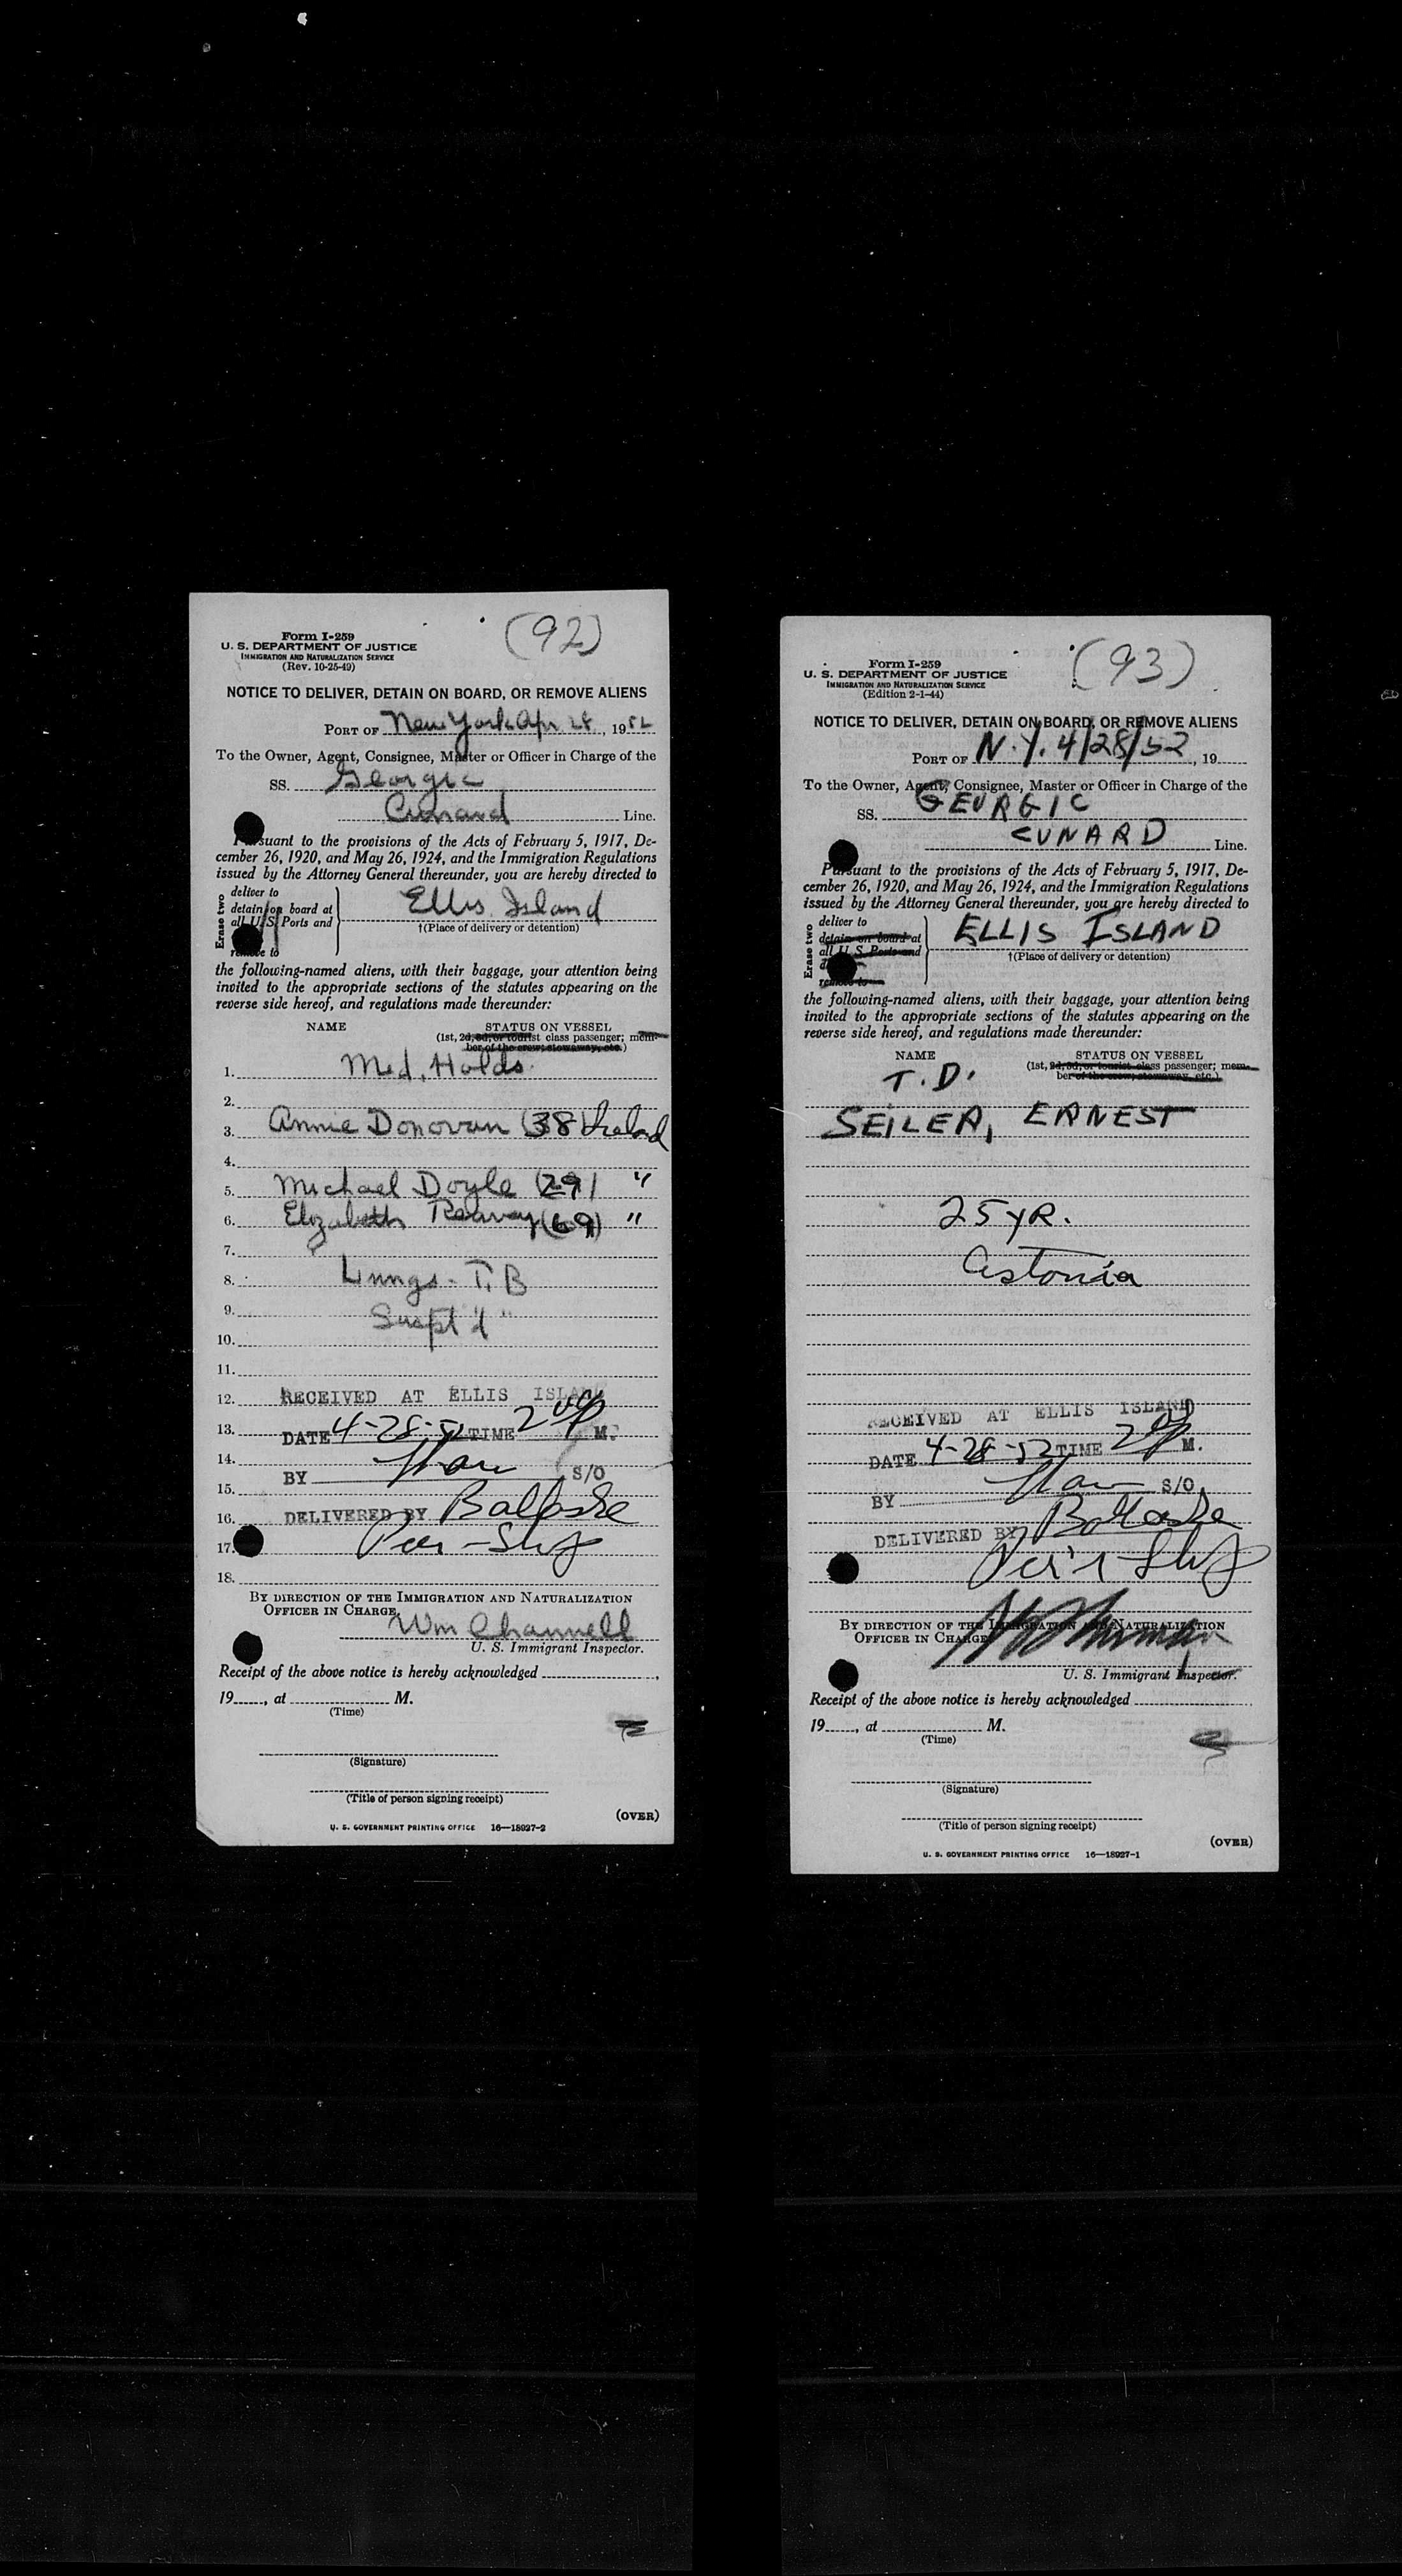 (92)
Form I-259
U. S. DEPARTMENT OF JUSTICE
IMMIGRATION AND NATURALIZATION SERVICE
(Rev. 10-25-49)
NOTICE TO DELIVER, DETAIN ON BOARD, OR REMOVE ALIENS
PORT OF New York Apr. 28, 1952
To the Owner, Agent, Consignee, Master or Officer in Charge of the
SS. Georgic
Cunard Line.
Pursuant to the provisions of the Acts of February 5, 1917, De-
cember 26, 1920, and May 26, 1924, and the Immigration Regulations
issued by the Attorney General thereunder, you are hereby directed to
Erase two
deliver to
detain on board at
all U. S. Ports and
remove to
Ellis Island
†(Place of delivery or detention)
the following-named aliens, with their baggage, your attention being
invited to the appropriate sections of the statutes appearing on the
reverse side hereof, and regulations made thereunder:
NAME STATUS ON VESSEL
(1st, 2d, 3d, or tourist class passenger; mem-
ber of the crew; stowaway, etc.)
1. Med. Holds.
2.
3. Annie Donovan (38) Ireland
4.
5. Michael Doyle (29) "
6. Elizabeth (69) "
7.
8. Lungs - T.B
9. Suspt'd "
10.
11.
12. RECEIVED AT ELLIS ISLAND
13. DATE 4-28-52 TIME 2 00 P M.
14.
BY S/O
15.
16. DELIVERED BY
17.
18.
BY DIRECTION OF THE IMMIGRATION AND NATURALIZATION
OFFICER IN CHARGE,
Wm Channell
U. S. Immigrant Inspector.
Receipt of the above notice is hereby acknowledged
19, at M.
(Time)
(Signature)
(Title of person signing receipt)
(OVER)
U. S. GOVERNMENT PRINTING OFFICE 16—18927-2
(93)
Form I-259
U. S. DEPARTMENT OF JUSTICE
IMMIGRATION AND NATURALIZATION SERVICE
(Edition 2-1-44)
NOTICE TO DELIVER, DETAIN ON BOARD, OR REMOVE ALIENS
PORT OF N.Y. 4/28/52, 19
To the Owner, Agent, Consignee, Master or Officer in Charge of the
SS. GEORGIC
CUNARD Line.
Pursuant to the provisions of the Acts of February 5, 1917, De-
cember 26, 1920, and May 26, 1924, and the Immigration Regulations
issued by the Attorney General thereunder, you are hereby directed to
Erase two
deliver to
detain on board at
all U. S. Ports and
remove to
ELLIS ISLAND
†(Place of delivery or detention)
the following-named aliens, with their baggage, your attention being
invited to the appropriate sections of the statutes appearing on the
reverse side hereof, and regulations made thereunder:
NAME STATUS ON VESSEL
(1st, 2d, 3d, or tourist class passenger; mem-
ber of the crew; stowaway, etc.)
T.D.
SEILER, ERNEST
25 YR.
Estonia
RECEIVED AT ELLIS ISLAND
DATE 4-28-52 TIME 2 00 P M.
BY S/O
DELIVERED BY
BY DIRECTION OF THE IMMIGRATION AND NATURALIZATION
OFFICER IN CHARGE,
U. S. Immigrant Inspector.
Receipt of the above notice is hereby acknowledged
19, at M.
(Time)
(Signature)
(Title of person signing receipt)
(OVER)
U. S. GOVERNMENT PRINTING OFFICE 16—18927-1